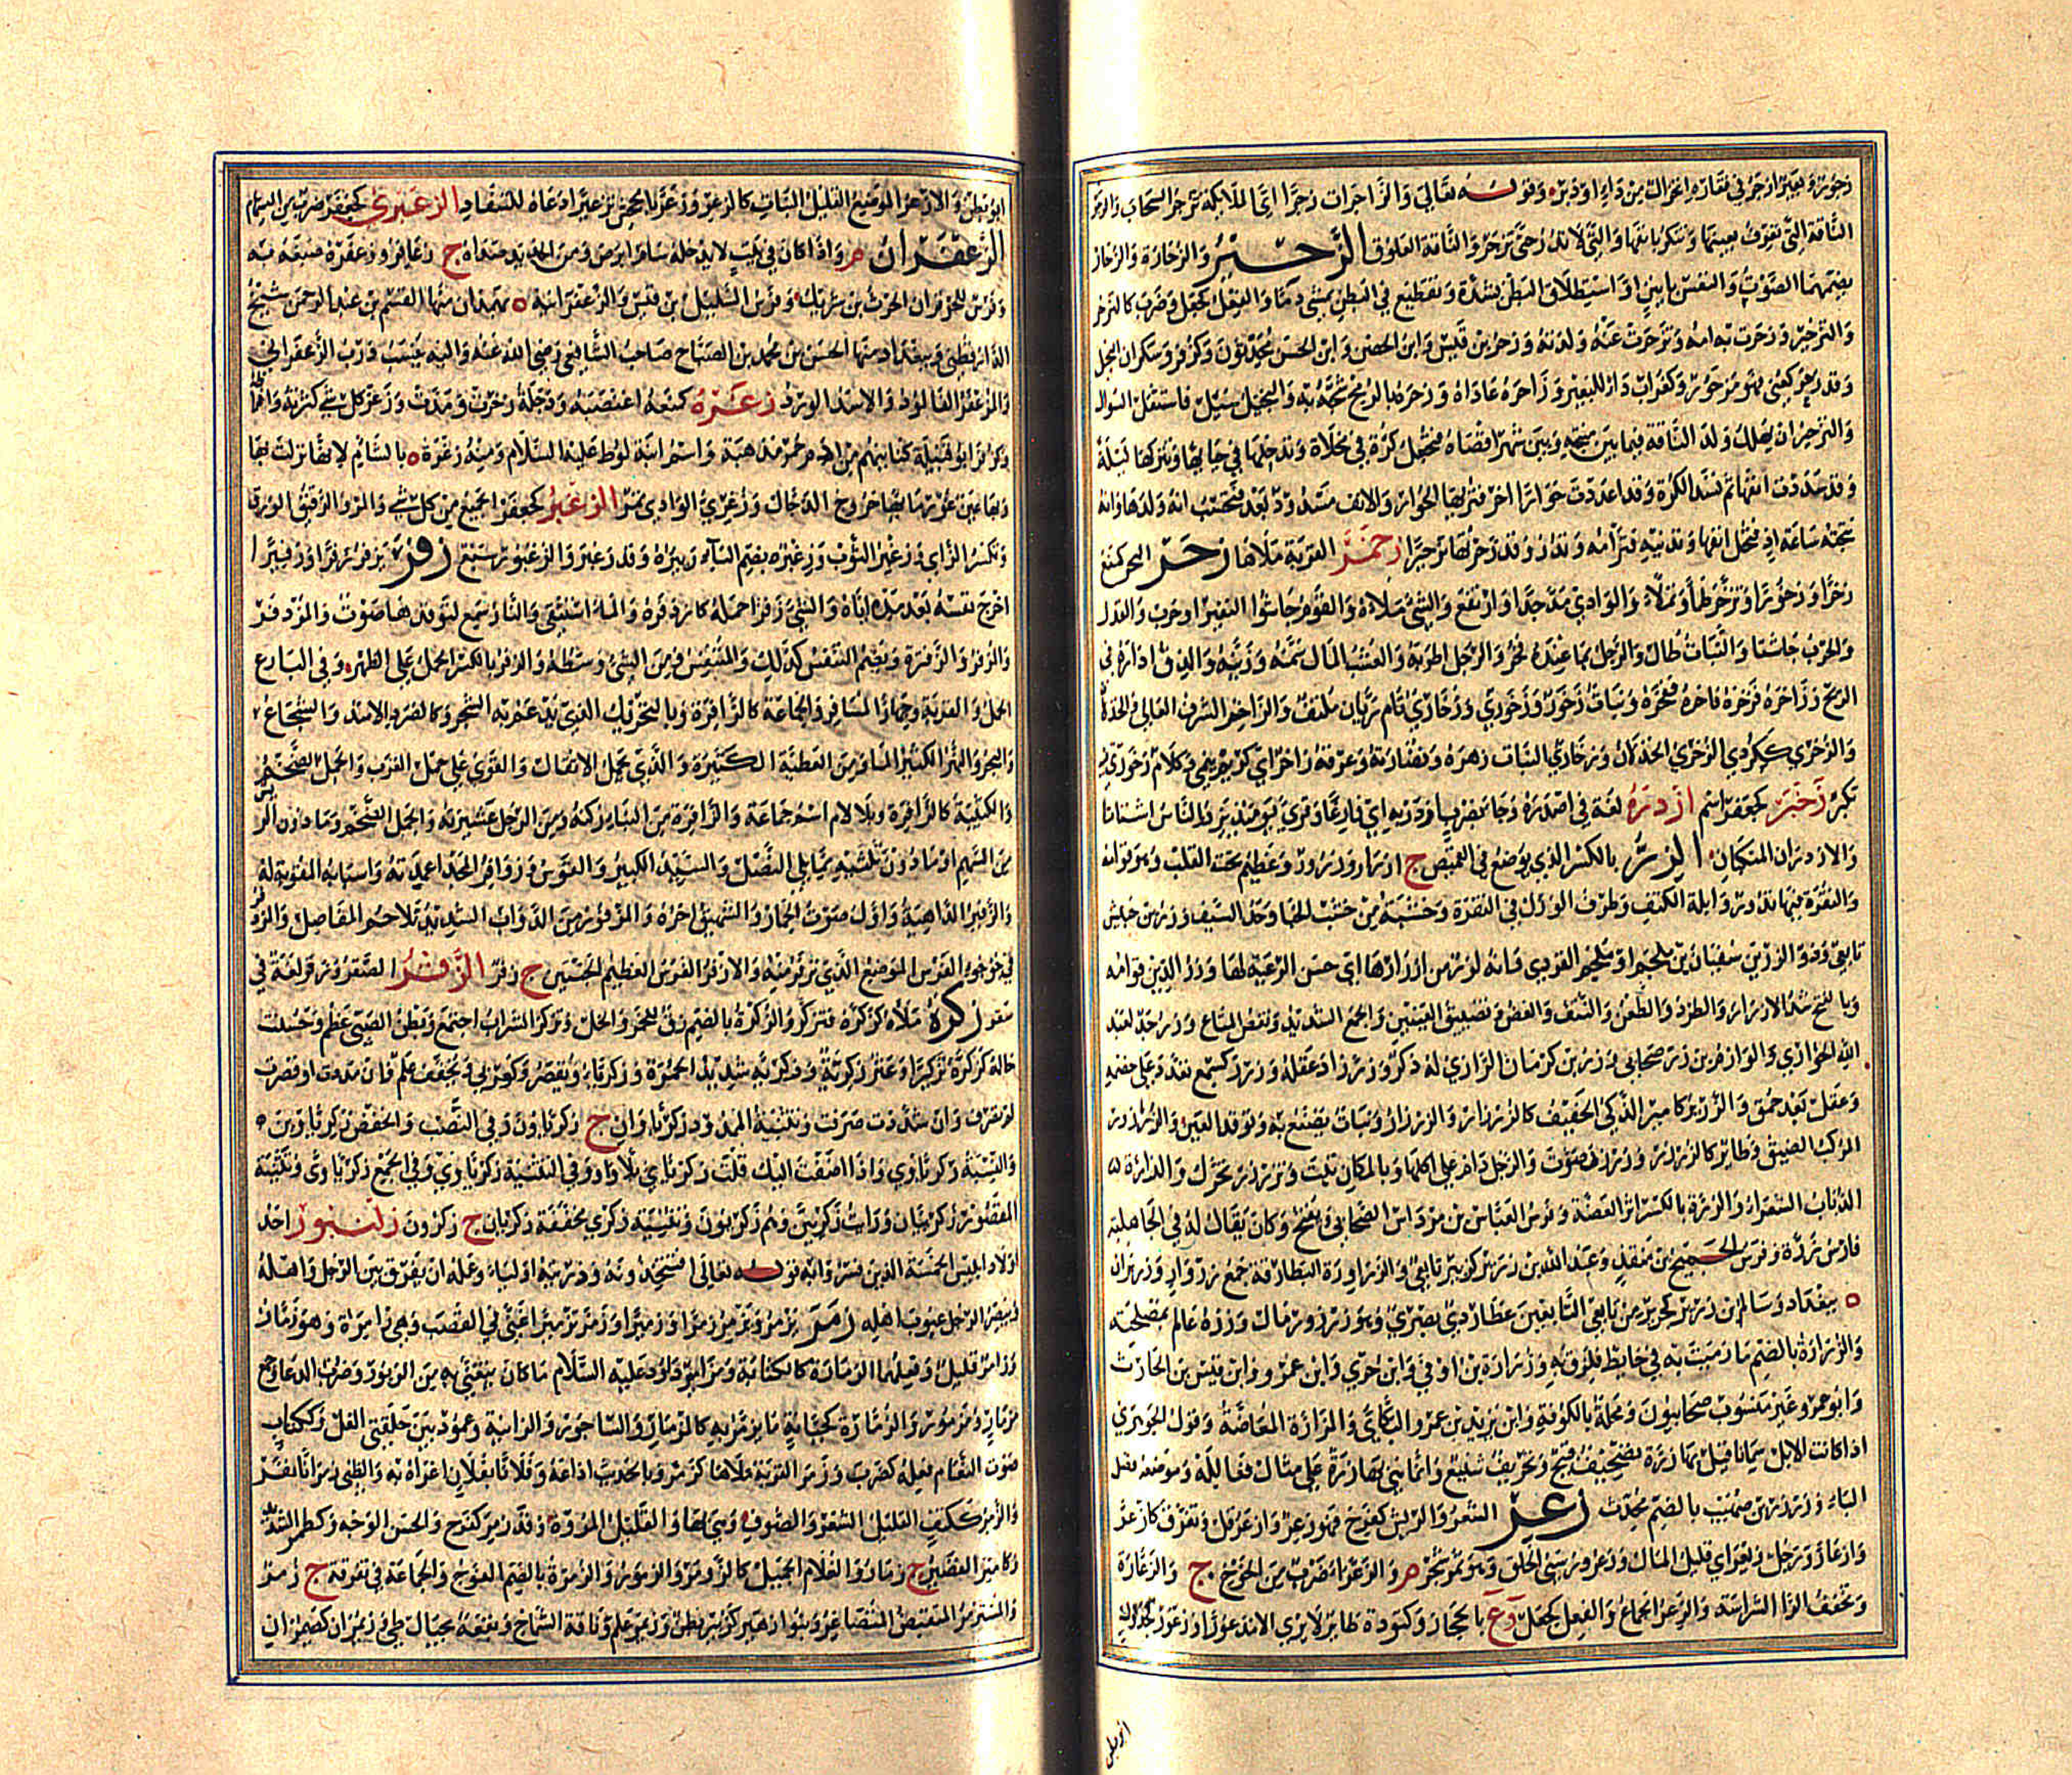 زجور وبعير ازجر في فقاره انخزال من داء او دبر وقوله تعالى والزاجرات زجرا اي الملائكة تزجر السحاب والزجر
الناقة التي تعرف بعينها وتنكر بانفها والتي لا تدر حتى تزجر والناقة العلوق الزحير والزحار والزحارة
بضمهما الصوت والنفس بانين او استطلاق البطن بشدة وتقطيع في البطن يمشي دما والفعل كجعل وضرب كالتزحر
والتزحير وزحرت به امه وتزحرت عنه ولدته وزحر بن قيس وابن الحصن وابن الحسن محدثون وكزفر وسكران البخيل
وقد زحر كعني فهو مزحور وكغراب داء للبعير وزاحره عاداه وزحره بالرمح شجه به والبخيل سئل فاستثقل السؤال
والتزحير ان يهلك ولد الناقة فيما بين منتجه وبين شهر اقصاه فتجعل كرة في مخلاة وتدخلها في حيائها وتتركها ليلة
وقد سددت انفها ثم تسل الكرة وقد اعددت حوارا اخر فتريها الحوار والانف مسدود بعد فتحسب انه ولدها وانه
نتجته ساعة اذ فتحل انفها وتدنيه فترامه وتدر وقد زحرتها تزحيرا زحمر القربة ملاها زخر البحر كمنع
زخرا وزخورا وتزخر طما وتملا والوادي مد جدا وارتفع والشئ ملاه والقوم جاشوا لنفير او حرب والقدر
والحرب جاشتا والنبات طال والرجل بما عنده فخر والرجل اطربه والعشب المال سمنه وزينه والدق اذراه في
الريح وزاخره فزخره فاخره ففخره ونبات زخور وزخوري وزخاري تام ريان ملتف والزاخر الشرف العالي والجذلان
والزخري ككردي الزخري الجذلان وزخاري النبات زهره ونضارته وعرقه زاخر اي كريم ينمي وكلام زخوري فيه
تكبر زخبر كجعفر اسم ازدره لغة في اصدره وجاء يضرب ازدريه اي فارغا وقرئ يومئذ يزدر الناس اشتاتا
والازدران المنكبان الزر بالكسر الذي يوضع في القميص ج ازرار وزرور وعظيم تحت القلب وهو قوامه
والنقرة فيها تدور وابلة الكتف وطرف الورك في النقرة وخشبة من خشب الخباء وحد السيف وزر بن حبيش
تابعي وذو الزرين سفيان بن ملحم او ملحم القردي وانه لزر من ازرارها اي حسن الرعية لها وزر الدين قوامه
وبالفتح شد الازرار والطرد والطعن والنتف والعض وتضييق العينين والجمع الشديد ونفض المتاع وزر جد لعبد
الله الخواري والوازهر بن زر صحابي وزر بن كرمان الرازي له ذكر وزر زاد عقله وزرر كسمع تعدى على خصمه
وعقل بعد حمق والزرير كامير الذكي الخفيف كالزرازر والزرزار ونبات يصبغ به وتوقد العين والزرزور
المركب الضيق وطائر كالزرزر وزرزر صوت والرجل دام على اكلها وبالمكان ثبت وتزرزر تحرك والدارة
الذباب الشعراء والزرة بالكسر اثر العضة وفرس العباس بن مرداس الصحابي ويفتح وكان يقال له في الجاهلية
فارس زرة وفرس الجميح بن منقذ وعبد الله بن زرير كزبير تابعي والزراورة البطارقة جمع زروار وزرزان
ه ببغداد وسالم ابن زرير كجرير من تابعي التابعين عطاردي بصري وهو زرزور مال وزرة عالم بمصلحته
والزرارة بالضم ما رميت به في حايط فلزق به وزرارة بن اوفى وابن جزي وابن عمرو وابن قيس بن الحارث
وابو عمرو غير منسوب صحابيون ومحلة بالكوفة وابن يزيد بن عمرو البكائي والزارة المعاضة وقول الجوهري
اذا كانت الابل سمانا قيل بها زرة تصحيف قبيح وتحريف شنيع وانما هي بها زرة على مثال فعاللة وموضعه فصل
الباء وزرزر بن صهيب بالضم محدث زعر الشعر والريش كفرح فهو زعر وازعر قل وتفرق كازعر
وازعار ورجل زيعر اي قليل المال وزعرور سيئ الخلق وهو ثمر شجر م والزعراء ضرب من الخوخ ج والزعارة
وتخفف الراء الشراسة والزعر الجماع والفعل كجعل وع بالحجاز وكتودة طاير لا يرى الا مذعورا وزعور كجدول
ابو بطن والازعر الموضع القليل النبات كالزعر وزعر بالجحش تزعيرا دعاه للسفاد الزعبري كجعفري ضرب من السهام
الزعفران م واذا كان في بيت لا يدخله سام ابرص ومن الحديد صداه ج زعافر وزعفره صبغه به
وفرس للحوفزان الحرث بن شريك وفرس السليل بن قيس والزعفرانية ه بهمذان منها القسم بن عبد الرحمن شيخ
الدارقطني وببغداد منها الحسن بن محمد بن الصباح صاحب الشافعي رضي الله عنه واليه ينسب درب الزعفراني
والمزعفر الفالوذ والاسد الورد زغره كمنعه اغتصبه ودجلة زخرت ومدت وزغر كل شئ كثرته وافراطه
وكزفر ابو قبيلة كنانهم من ادم حمر مذهبة واسم ابنة لوط عليه السلام ومنه زغرة ه بالشام لانها نزلت بها
وبها عين غور مائها خروج الدجال وزغري الوادي تمر الزغبر كجعفر الجميع من كل شئ والمرو الرقيق الورق
وتكسر الزاي وزغبر الثوب وزغبره بضم الباء زبيره وقد زغبر والزغبور سبع زفر يزفر زفرا وزفيرا
اخرج نفسه بعد مده اياه والشئ زفرا حمله كازدفره والماء استقى والنار سمع لتوقدها صوت والمزدفر
والزفر والزفرة ويضم التنفس كذلك والمتنفس ومن الشئ وسطه والزفر بالكسر الحمل على الظهر وفي البارع
الحمل والقربة وجهاز المسافر والجماعة كالزافرة وبالتحريك الذي يدعم به الشجر وكالصرد الاسد والشجاع
والبحر والنهر الكثير الماء ومن العطية الكثيرة والذي يحمل الاثقال والقوي على حمل القرب والجمل الضخم
والكتيبة كالزافرة وبلا لام اسم جماعة والزافرة من البناء ركنه ومن الرجل عشيرته والجمل الضخم وما دون الريش
من السهم او ما دون ثلثيه مما يلي النصل والسيد الكبير والقوس وزوافر المجد اعمدته واسبابه المقوية له
والزفير الداهية واول صوت الحمار والشهيق اخره والمزفور من الدواب الشديد تلاحم المفاصل والزفر
في جؤجؤ الفرس الموضع الذي يزفر منه والازفر الفرس العظيم الجنبين ج زفر الزقر الصقر وزقر لغة في
سقر زكره ملاه كزكره فتزكر والزكرة بالضم زق للخمر والخل وتزكر الشراب اجتمع وبطن الصبي عظم وحسنت
حاله كزكر تزكيرا وعنز زكرية وزكرية شديدة الحمرة وزكرياء ويقصر وكعربي ويخفف علم فان مددت او قصرت
لم تصرف وان شددت صرفت وتثنية الممدود زكرياوان ج زكرياوون وفي النصب والخفض زكرياوين
والنسبة زكرياوي واذا اضفت اليك قلت زكريائي بلا واو وفي التثنية زكرياوي وفي الجمع زكرياوي وتثنية
المقصور زكرييان ورايت زكريين وهم زكريون وتثنية زكري مخففة زكريان ج زكرون زلنبور احد
اولاد ابليس الخمسة الذين فسروا به قوله تعالى افتتخذونه وذريته اولياء وعمله ان يفرق بين الرجل واهله
ويبصر الرجل عيوب اهله زمر يزمر ويزمر زمرا وزميرا وزمر تزميرا غنى في القصب وهي زامرة وهو زمار
وزامر قليل وفعلهما الزمارة كالكتابة ومزامير داود عليه السلام ما كان يتغنى به من الزبور وضروب الدعاء جمع
مزمار ومزمور والزمارة كجبانة ما يزمر به كالمزمار والساجور والزانية وعمود بين حلقتي الغل وككتاب
صوت النعام وفعله كضرب وزمر القربة ملاها كزمر وبالحديث اذاعه وفلانا بفلان اغراه به والظبي زمرانا نفر
والزمر ككتف القليل الشعر والصوف وهي بهاء والقليل المروة وقد زمر كفرح والحسن الوجه وكطمر الشديد
وكامير القصير ج زمار والغلام الجميل كالزومر والزمور والزمرة بالضم الفوج والجماعة في تفرقة ج زمر
والمستزمر المنقبض المتصاغر وبنو زهير كزبير بطن وزيمر علم وناقة الشماخ وبقعة بجبال طي وزيمران كضيمران
ابو بطن